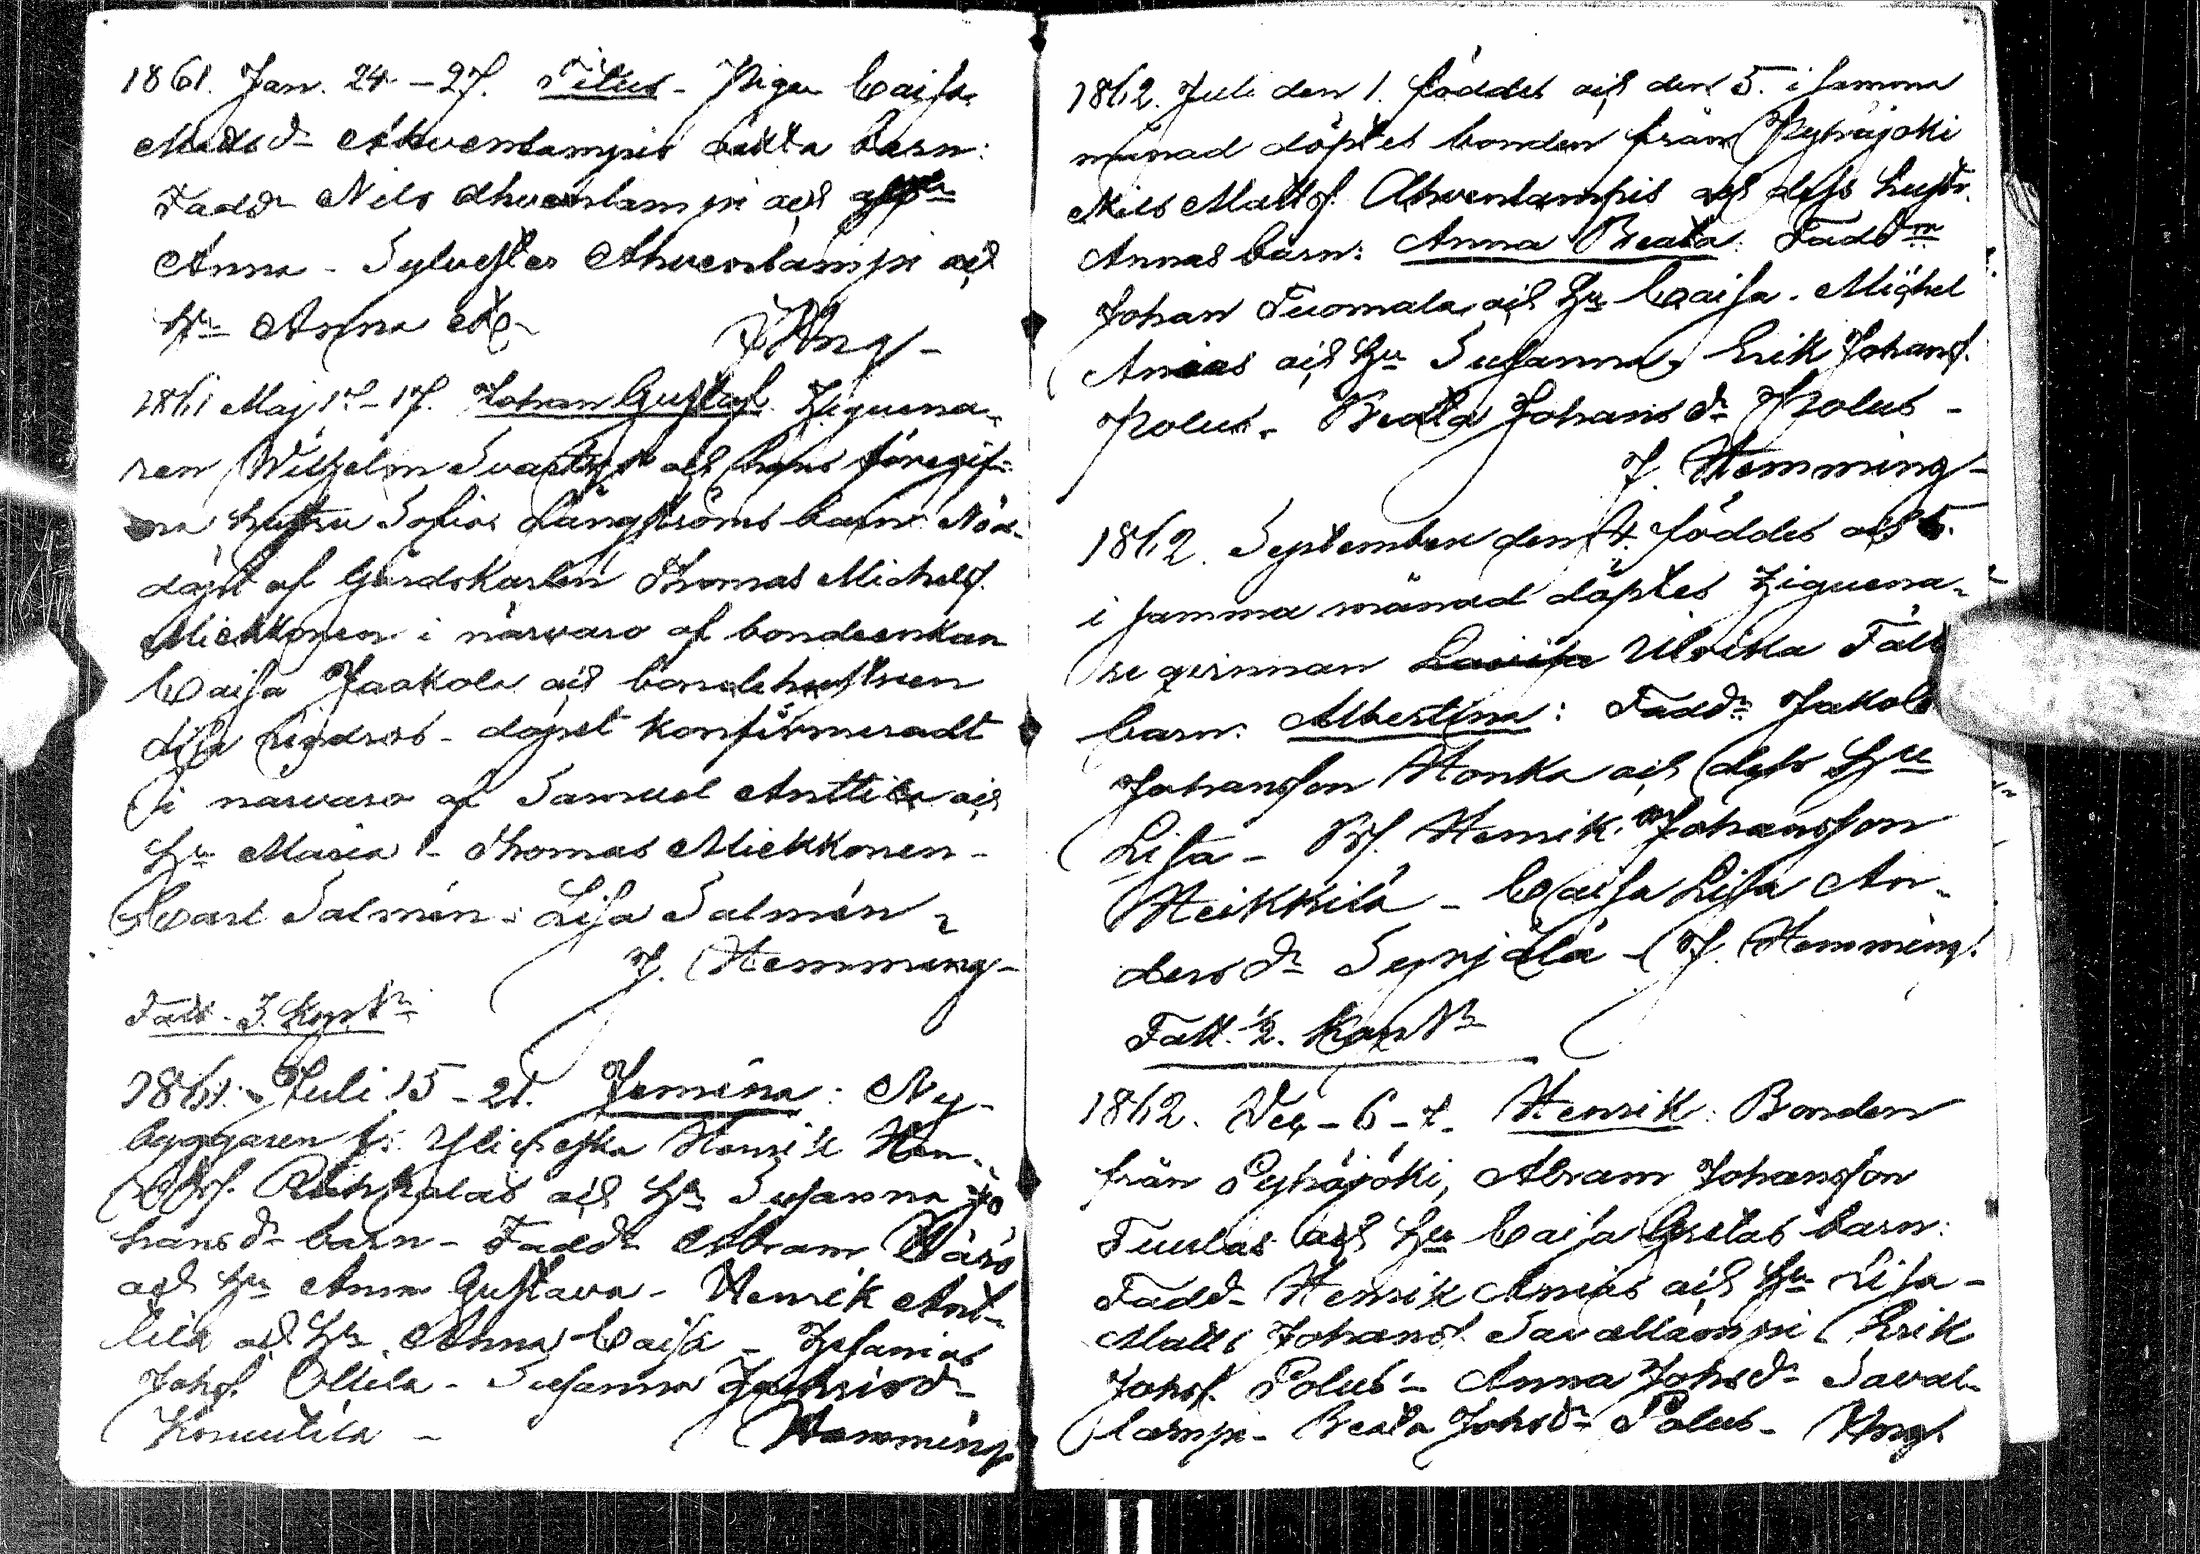 1861. Jan. 24 - 27. Titus - Pigan Caisa
Matsdr Ahvenlampis äkta barn:
Faddr Nils Ahvenlampi och
Anna - Sylvester Ahvenlampi och
Hu Anna
JHmg -
1861 Maj 12 - 17. Johan Gustaf. Ziguena-
ren Wilhelm Svart och hans föregif-
na hustru Sofias Långströms barn. Nöd-
döpt af Gårdskarlen Thomas Michelss.
Miekkonen i närvaro af bondeenkan
Caisa Jaakola och bondehustrun
- döpet konfirmeradt
i närvaro af Samuel Anttila och
Hu Maria - Thomas Miekkonen -
Carl Salmén - Lisa Salmén -
J. Hemming -
Fatt.
1861. Juli 15 - 21. Jemina: Ny-
byggaren fr. Henrik Hen-
Ruhkalas och Hu Susanna Jo
hansdr barn - Faddr Abram
och Hu Anna Gustava - Henrik Ant-
tila och Hu Anna Caisa - Zefanias
Johss. Ollila - Susanna
- Hemming
1862. Juli den 1. föddes och den 5. i samma
månad döptes bonden från Pyhäjoki
Nils Mattss. Ahvenlampis och dess hustr.
Annas barn: Anna Beata. Faddrn
Johan Tuomala och Hu Caisa. Michel
Anias och Hu Susanna, Erik Johanss.
Polus. Beata Johansdr Polus -
J. Hemming -
1862. September den 4. föddes och 5.
i samma månad döptes Ziguena-
reqvinnan Ulrika Fält
barn. Albertina: Faddr Jakob
Johansson Honka och dess Hu
Lisa - Henrik Johansson
Heikkilä - Caisa Lisa An-
dersdr Syrjälä - J. Hemming.
Fatt. 1/2.
1862. Dec - 6 - 7. Henrik: Bonden
från Pyhäjoki, Abram Johansson
Tuulas och Hu Caisa Gretas barn:
Faddr Henrik Anias och Hu Lisa -
Matts Johanss. Savallampi Erik
Johss. Polus - Anna Johsdr Saval-
lampi - Beata Johsdr Polus - Hmg.